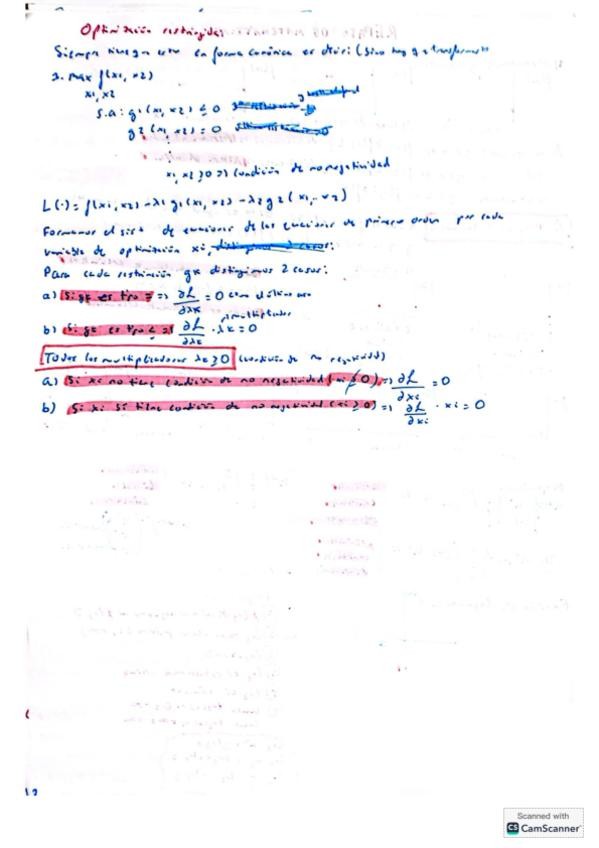 Optimización restringida:
Siempre tiene que estar en forma canónica es decir: (sino hay q transformarlo
1. max f(x1, x2)
x1, x2
s.a: g1(x1, x2) ≤ 0
g2(x1, x2) = 0
x1, x2 ≥ 0 => condición de no negatividad
L(·) = f(x1, x2) - λ1 g1(x1, x2) - λ2 g2(x1, x2)
Formamos el sist de ecuaciones de las ecuaciones de primer orden por cada
variable de optimización xi,
Para cada restricción gk distinguimos 2 casos:
a) Si gk es tipo = => ∂L/∂λk = 0
b) Si gk es tipo ≤ => ∂L/∂λk · λk = 0
multiplicador
Todos los multiplicadores λk ≥ 0 (condición de no negatividad)
a) Si xi no tiene condición de no negatividad (xi ≱ 0) => ∂L/∂xi = 0
b) Si xi sí tiene condición de no negatividad (xi ≥ 0) => ∂L/∂xi · xi = 0
Scanned with
CS CamScanner